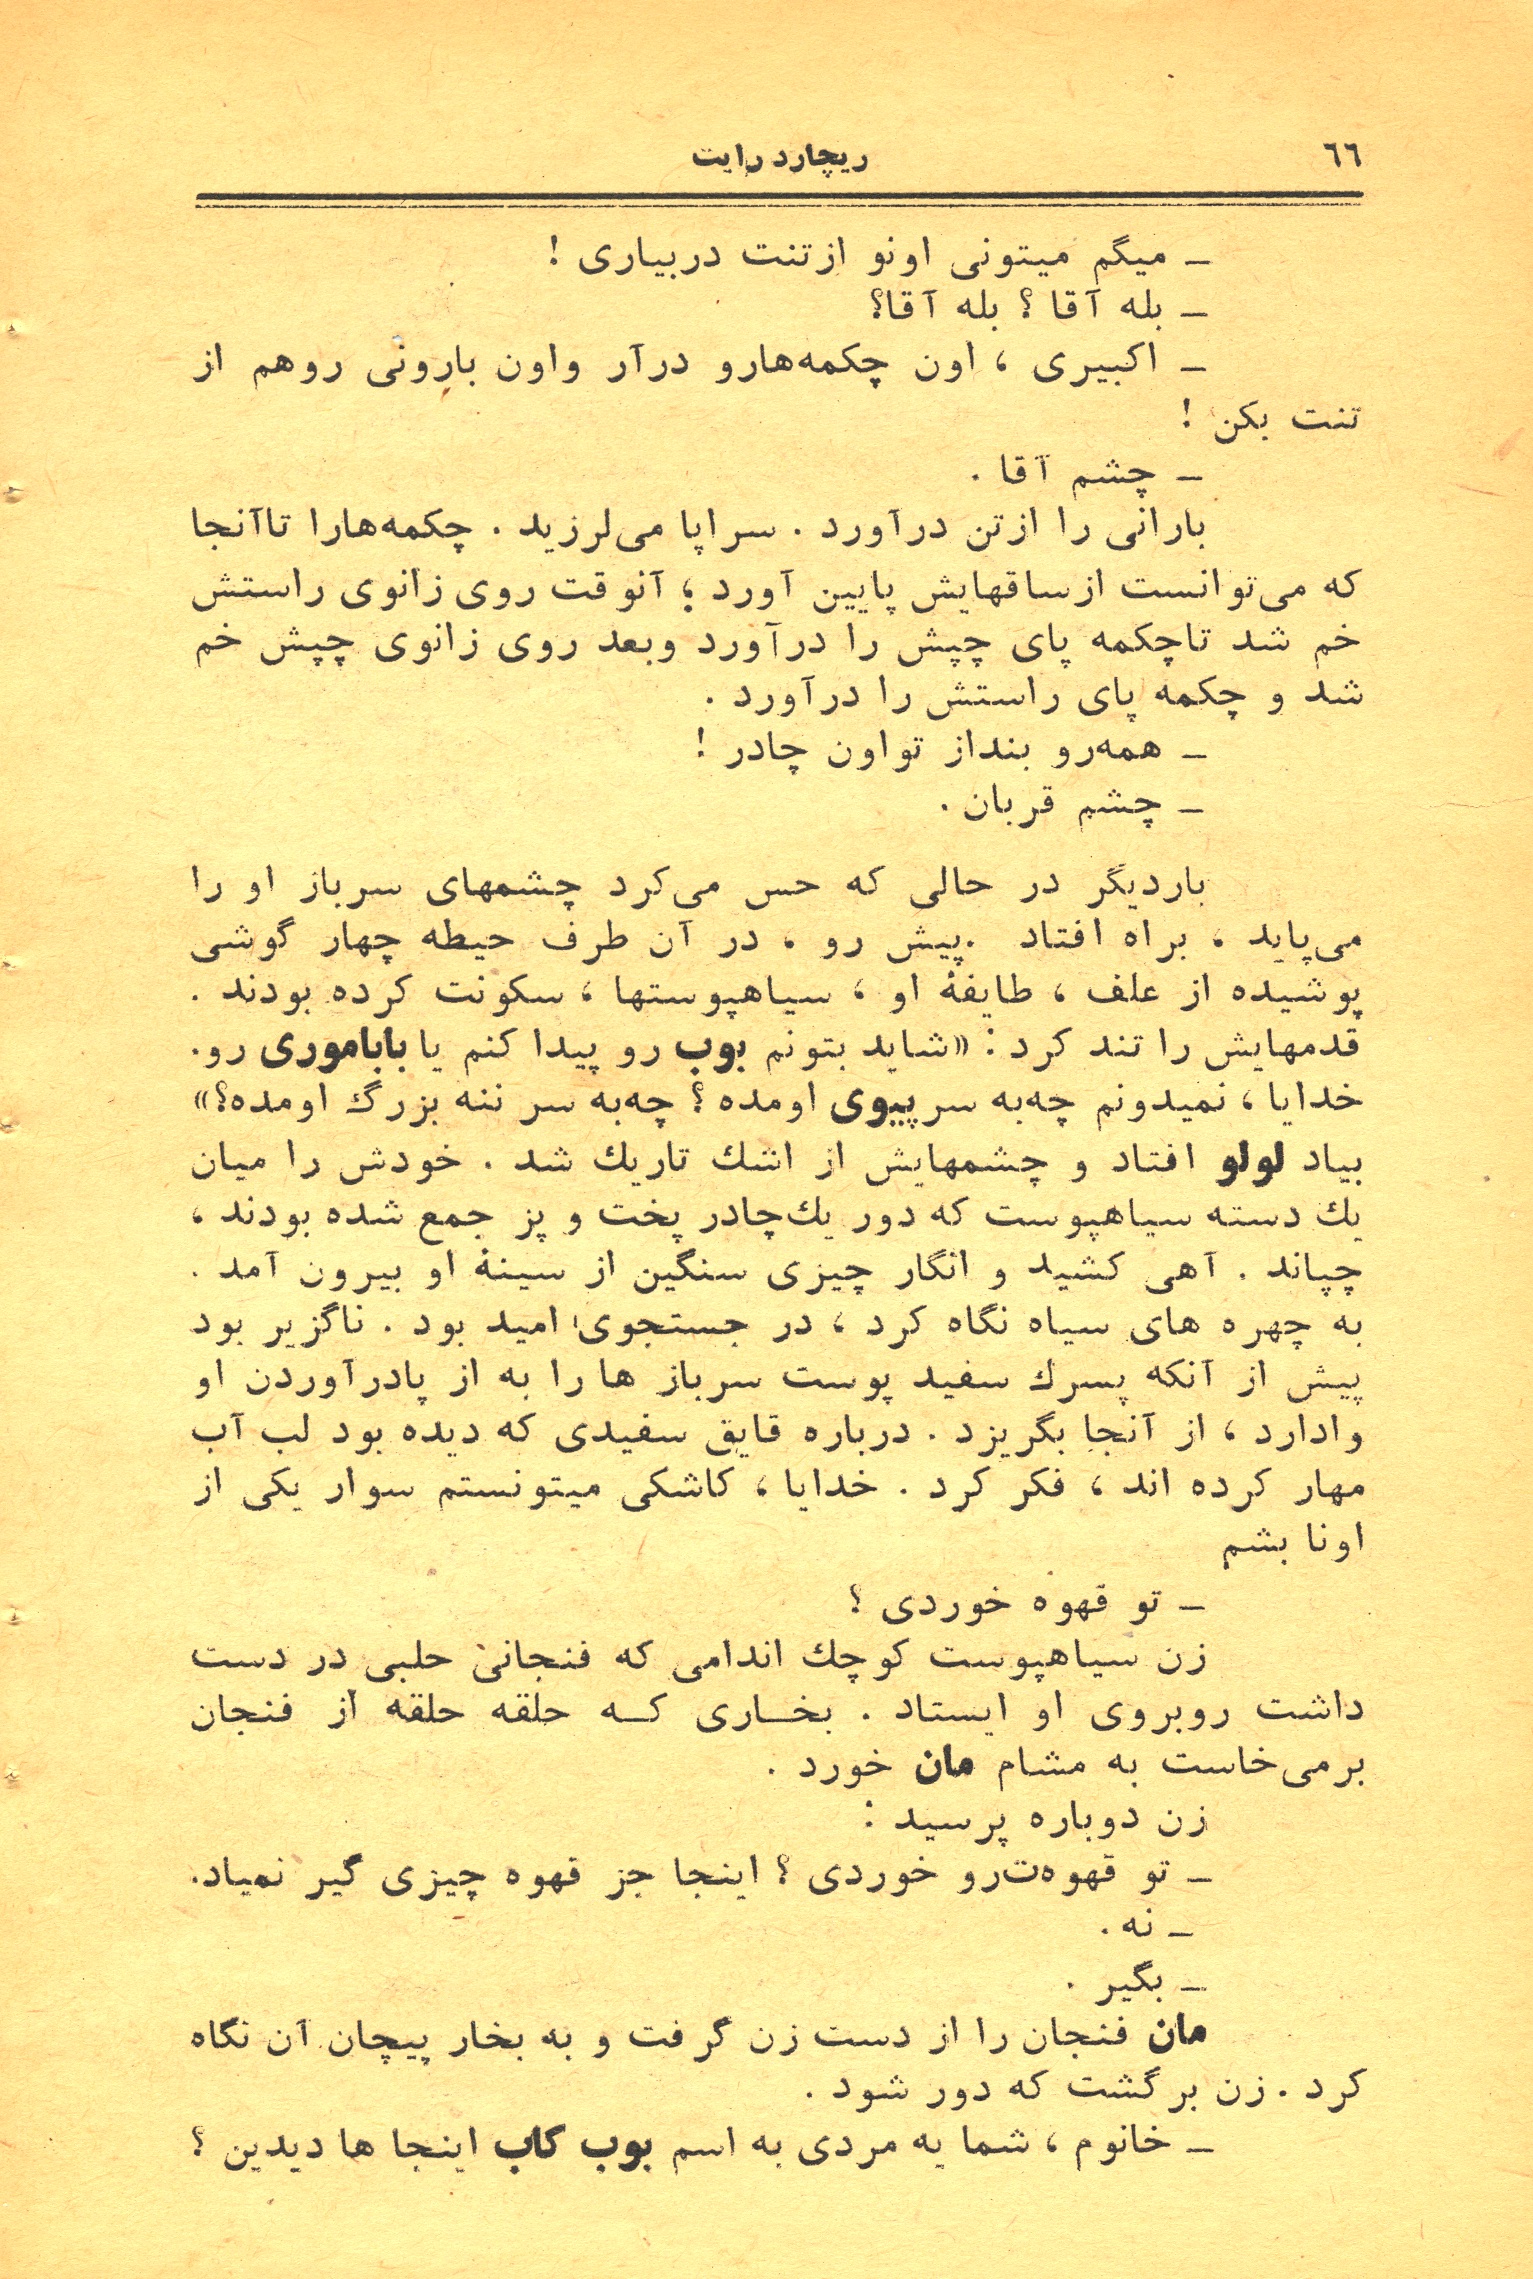 ٦٦
ریچارد رایت
ـ میگم میتونی اونو ازتنت دربیاری !
ـ بله آقا ؟ بله آقا؟
ـ اکبیری ، اون چکمه‌هارو درآر واون بارونی روهم از
تنت بکن !
ـ چشم آقا .
بارانی را ازتن درآورد . سراپا می‌لرزید . چکمه‌هارا تاآنجا
که می‌توانست ازساقهایش پایین آورد ؛ آنوقت روی زانوی راستش
خم شد تاچکمه پای چپش را درآورد وبعد روی زانوی چپش خم
شد و چکمه پای راستش را درآورد .
ـ همه‌رو بنداز تواون چادر !
ـ چشم قربان .
باردیگر در حالی که حس می‌کرد چشمهای سرباز او را
می‌پاید ، براه افتاد .پیش رو ، در آن طرف حیطه چهار گوشی
پوشیده از علف ، طایفهٔ او ، سیاهپوستها ، سکونت کرده بودند .
قدمهایش را تند کرد : «شاید بتونم بوب رو پیدا کنم یا باباموری رو.
خدایا ، نمیدونم چه‌به سر پیوی اومده ؟ چه‌به سر ننه بزرگ اومده؟»
بیاد لولو افتاد و چشمهایش از اشك تاریك شد . خودش را میان
یك دسته سیاهپوست که دور یك‌چادر پخت و پز جمع شده بودند ،
چپاند . آهی کشید و انگار چیزی سنگین از سینهٔ او بیرون آمد .
به چهره های سیاه نگاه کرد ، در جستجوی امید بود . ناگزیر بود
پیش از آنکه پسرك سفید پوست سرباز ها را به از پادرآوردن او
وادارد ، از آنجا بگریزد . درباره قایق سفیدی که دیده بود لب آب
مهار کرده اند ، فکر کرد . خدایا ، کاشکی میتونستم سوار یکی از
اونا بشم
ـ تو قهوه خوردی ؟
زن سیاهپوست کوچك اندامی که فنجانی حلبی در دست
داشت روبروی او ایستاد . بخــاری کــه حلقه حلقه از فنجان
برمی‌خاست به مشام مان خورد .
زن دوباره پرسید :
ـ تو قهوه‌ت‌رو خوردی ؟ اینجا جز قهوه چیزی گیر نمیاد.
ـ نه .
ـ بگیر .
مان فنجان را از دست زن گرفت و به بخار پیچان آن نگاه
کرد . زن برگشت که دور شود .
ـ خانوم ، شما یه مردی به اسم بوب کاب اینجا ها دیدین ؟